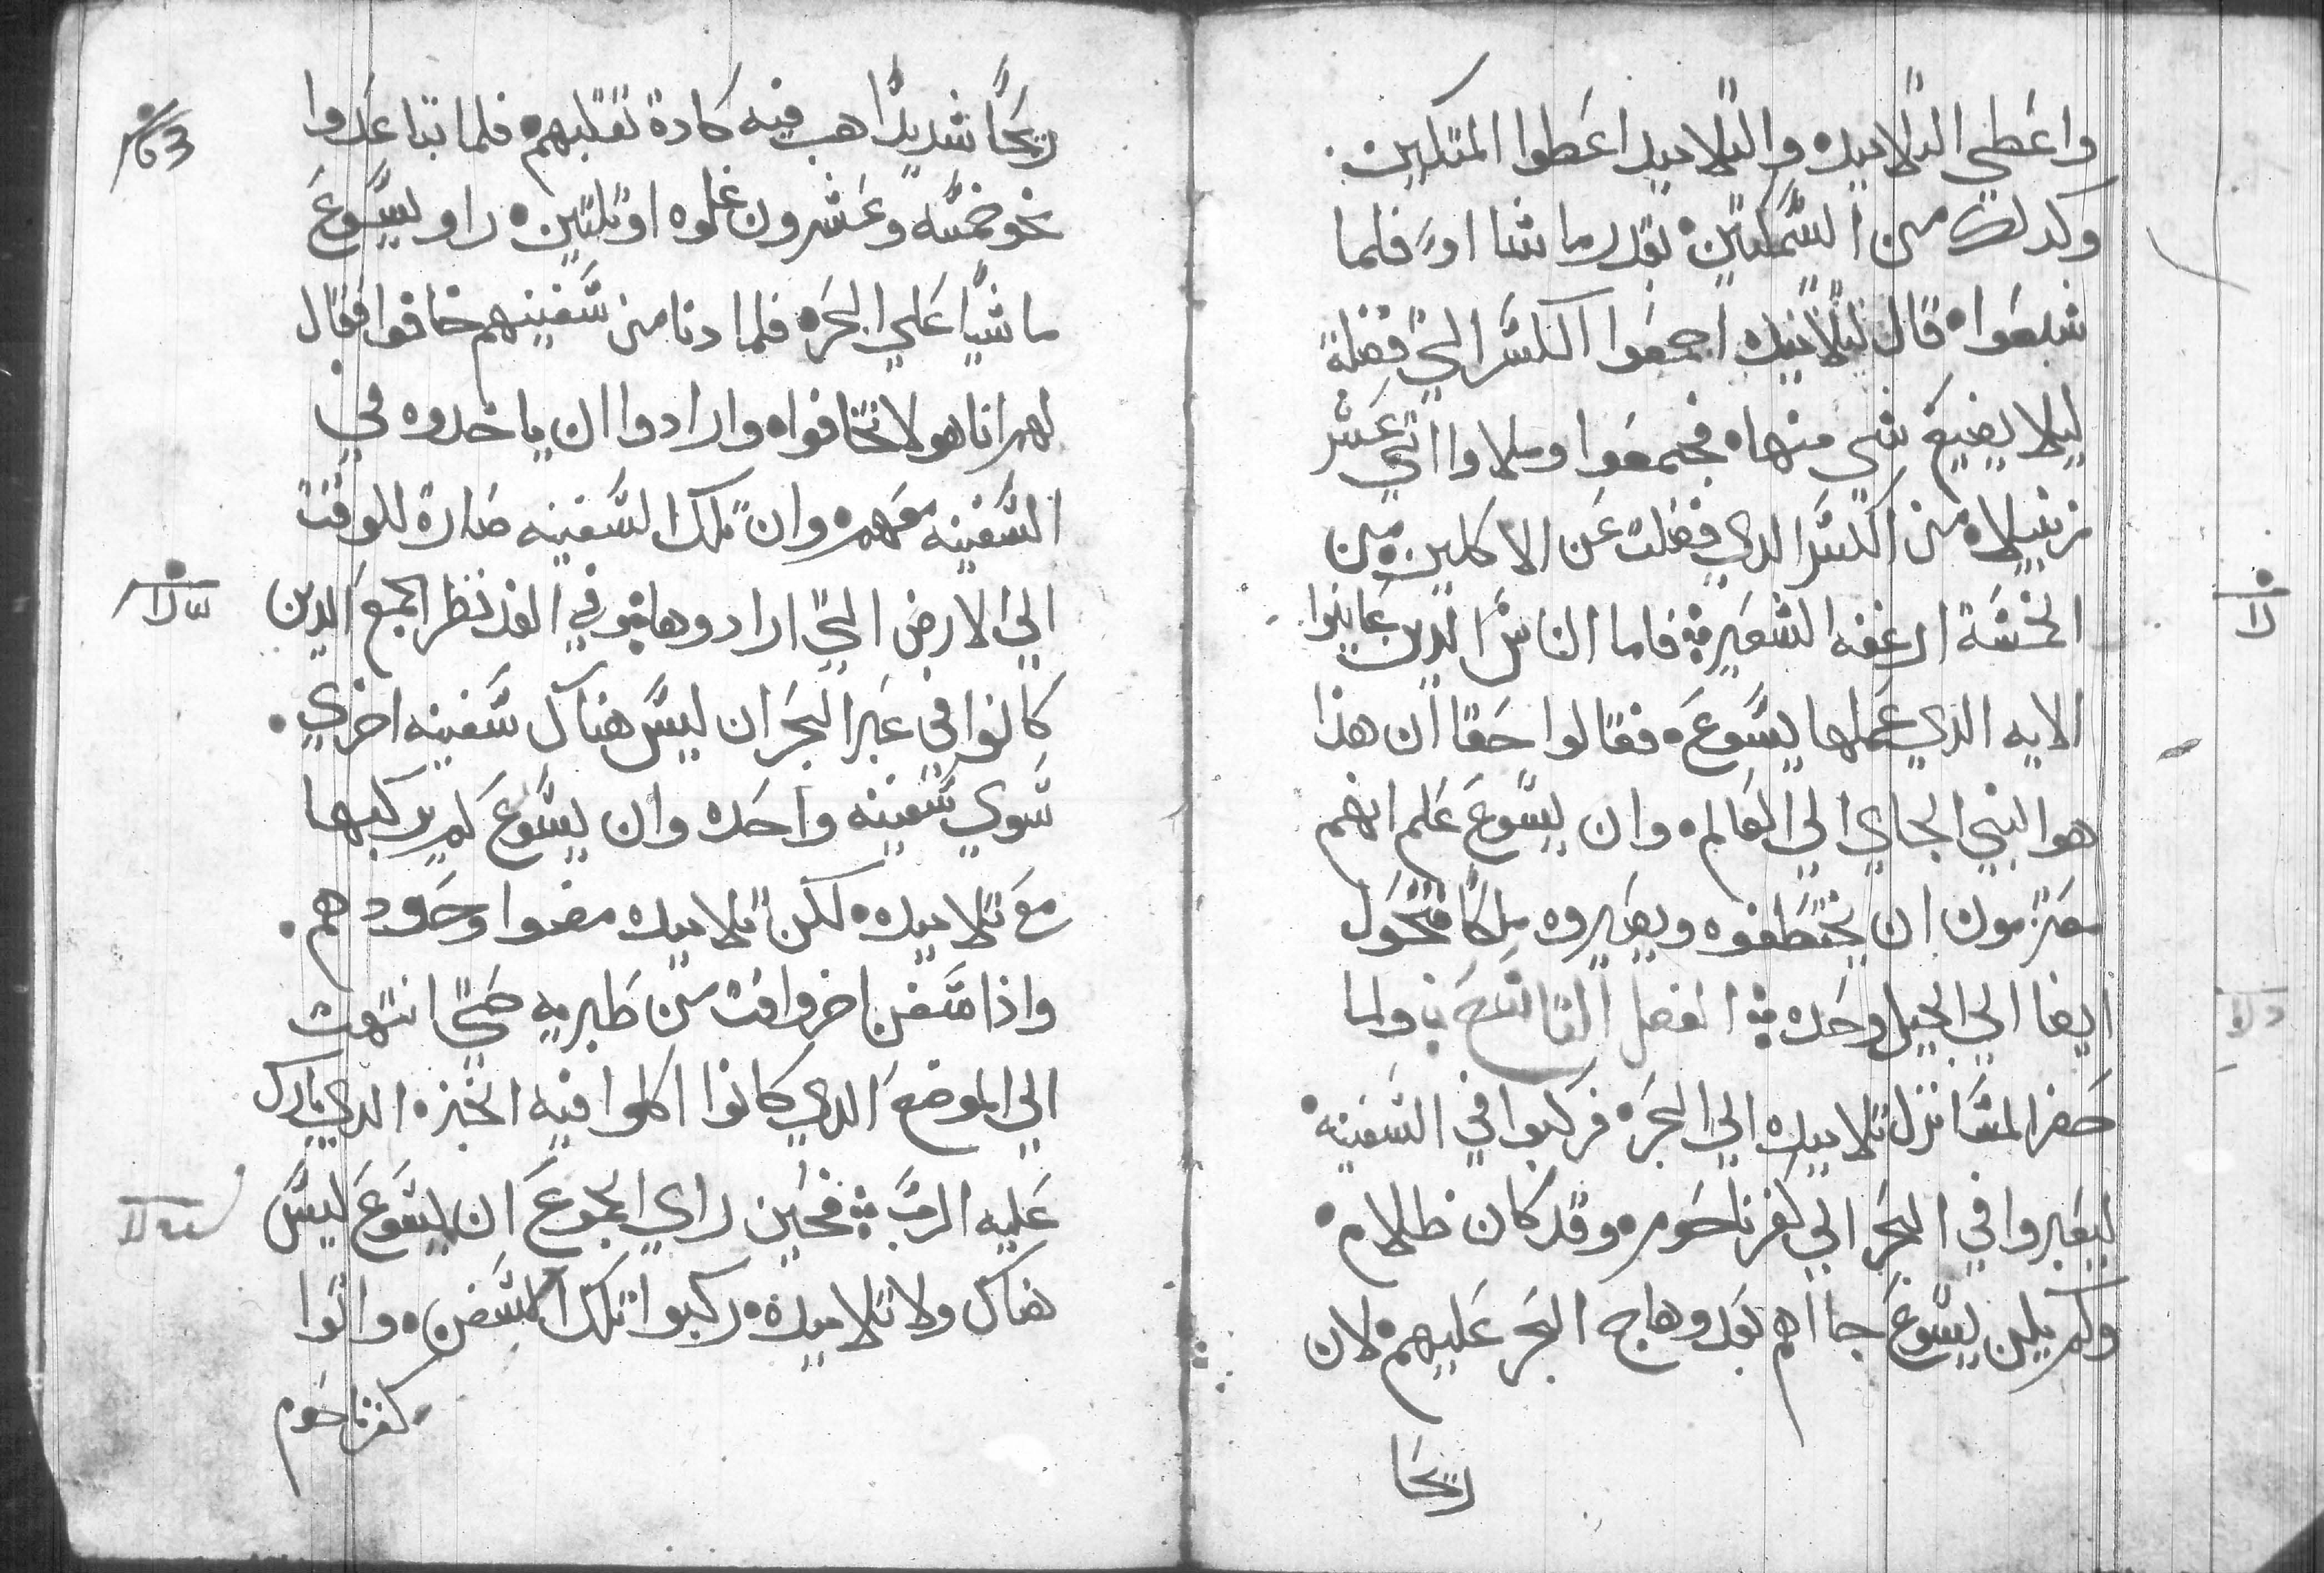 واعطي التلاميده والتلاميد اعطوا المتكيين.
وكدلك من السمكتين بقدر ما شااو فلما
شبعوا قال لتلاميده اجمعوا الكسر التي فضلة
ليلا يضيع شي منها فجمعوا وملاوا اثني عشر
زنبيلا من الكسر الدي فضلت عن الاكلين من
الخمسة ارغفه الشعير فاما الناس الدين عاينوا
الايه الذي عملها يسوع فقالوا حقا ان هذا
هو النبي الجاي الي العالم وان يسوع علم انهم
معتزمون ان يختطفوه ويصيروه ملكا فتحول
ايضا الي الجبل وحده الفصل التاسع ولما
حضر المسا نزل تلاميده الي البحر فركبوا في السفينه
ليعبروا في البحر الي كفرناحوم وقد كان ظلام
ولم يكن يسوع جااهم بعد وهاج البحر عليهم لان
ريحا
ريحا شديدا هب فيه كادة تقلبهم فلما تباعدوا
نحو خمسه وعشرون غلوه او تلتين راو يسوع
ماشيا علي البحر فلما دنا من سفينهم خافوا فقال
لهم انا هو لا تخافوا وارادوا ان ياخدوه في
السفينه معهم وان تلك السفينه صارة للوقت
الي الارض التي ارادوها وفي الغد نظر الجمع الدين
كانوا في عبر البحر ان ليس هناك سفينه اخري.
سوي سفينه واحده وان يسوع لم يركبها
مع تلاميده لكن تلاميده مضوا وحدهم.
واذا سفن اخر وافت من طبريه حتي انتهت
الي الموضع الدي كانوا اكلوا فيه الخبز الدي بارك
عليه الرب فحين راي الجموع ان يسوع ليس
هناك ولا تلاميده ركبوا تلك السفن واتوا
كفرناحوم